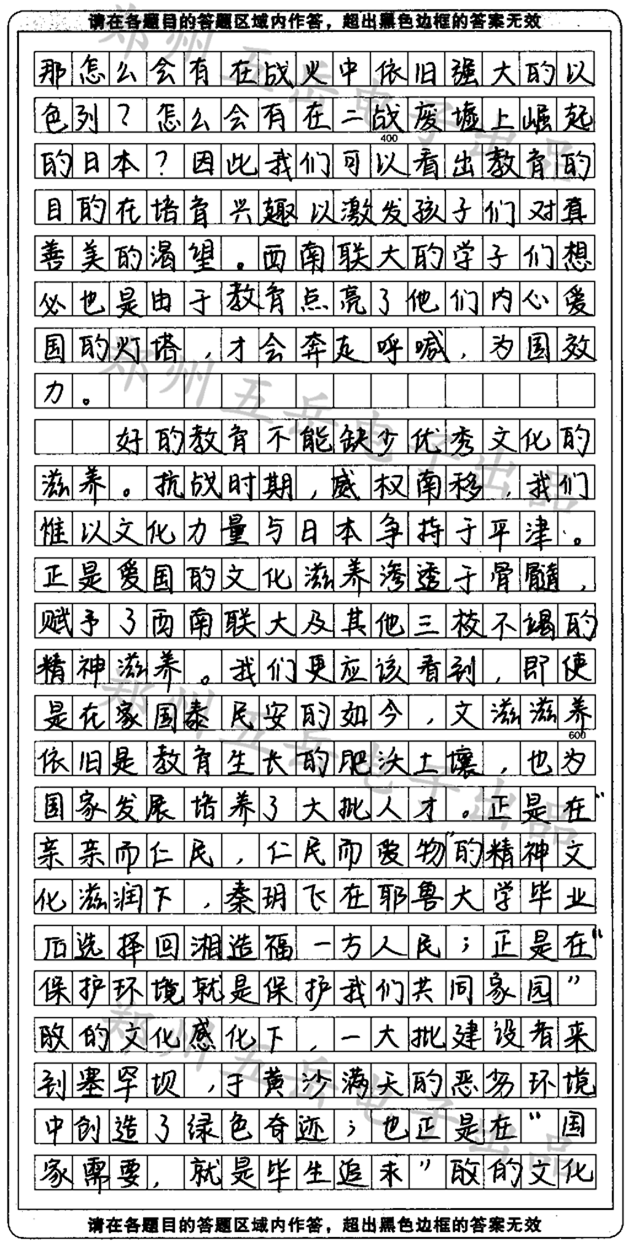 请在各题目的答题区域内作答，超出黑色边框的答案无效
那怎么会有在战火中依旧强大的以
色列？怎么会有在二战废墟上崛起
400
的日本？因此我们可以看出教育的
目的在培育兴趣以激发孩子们对真
善美的渴望。西南联大的学子们想
必也是由于教育点亮了他们内心爱
国的灯塔，才会奔走呼喊，为国效
力。
好的教育不能缺少优秀文化的
滋养。抗战时期，威权南移，我们
惟以文化力量与日本争持于平津。
正是爱国的文化滋养渗透于骨髓，
赋予了西南联大及其他三校不竭的
精神滋养。我们更应该看到，即使
是在家国泰民安的如今，文滋滋养
600
依旧是教育生长的肥沃土壤，也为
国家发展培养了大批人才。正是在“
亲亲而仁民，仁民而爱物”的精神文
化滋润下，秦玥飞在耶鲁大学毕业
后选择回湘造福一方人民；正是在“
保护环境就是保护我们共同家园”
的文化感化下，一大批建设者来
到塞罕坝，于黄沙满天的恶劣环境
中创造了绿色奇迹；也正是在“国
家需要，就是毕生追求”的文化
请在各题目的答题区域内作答，超出黑色边框的答案无效
郑州五岳电子出品
郑州五岳电子出品
郑州五岳电子出品
郑州五岳电子出品